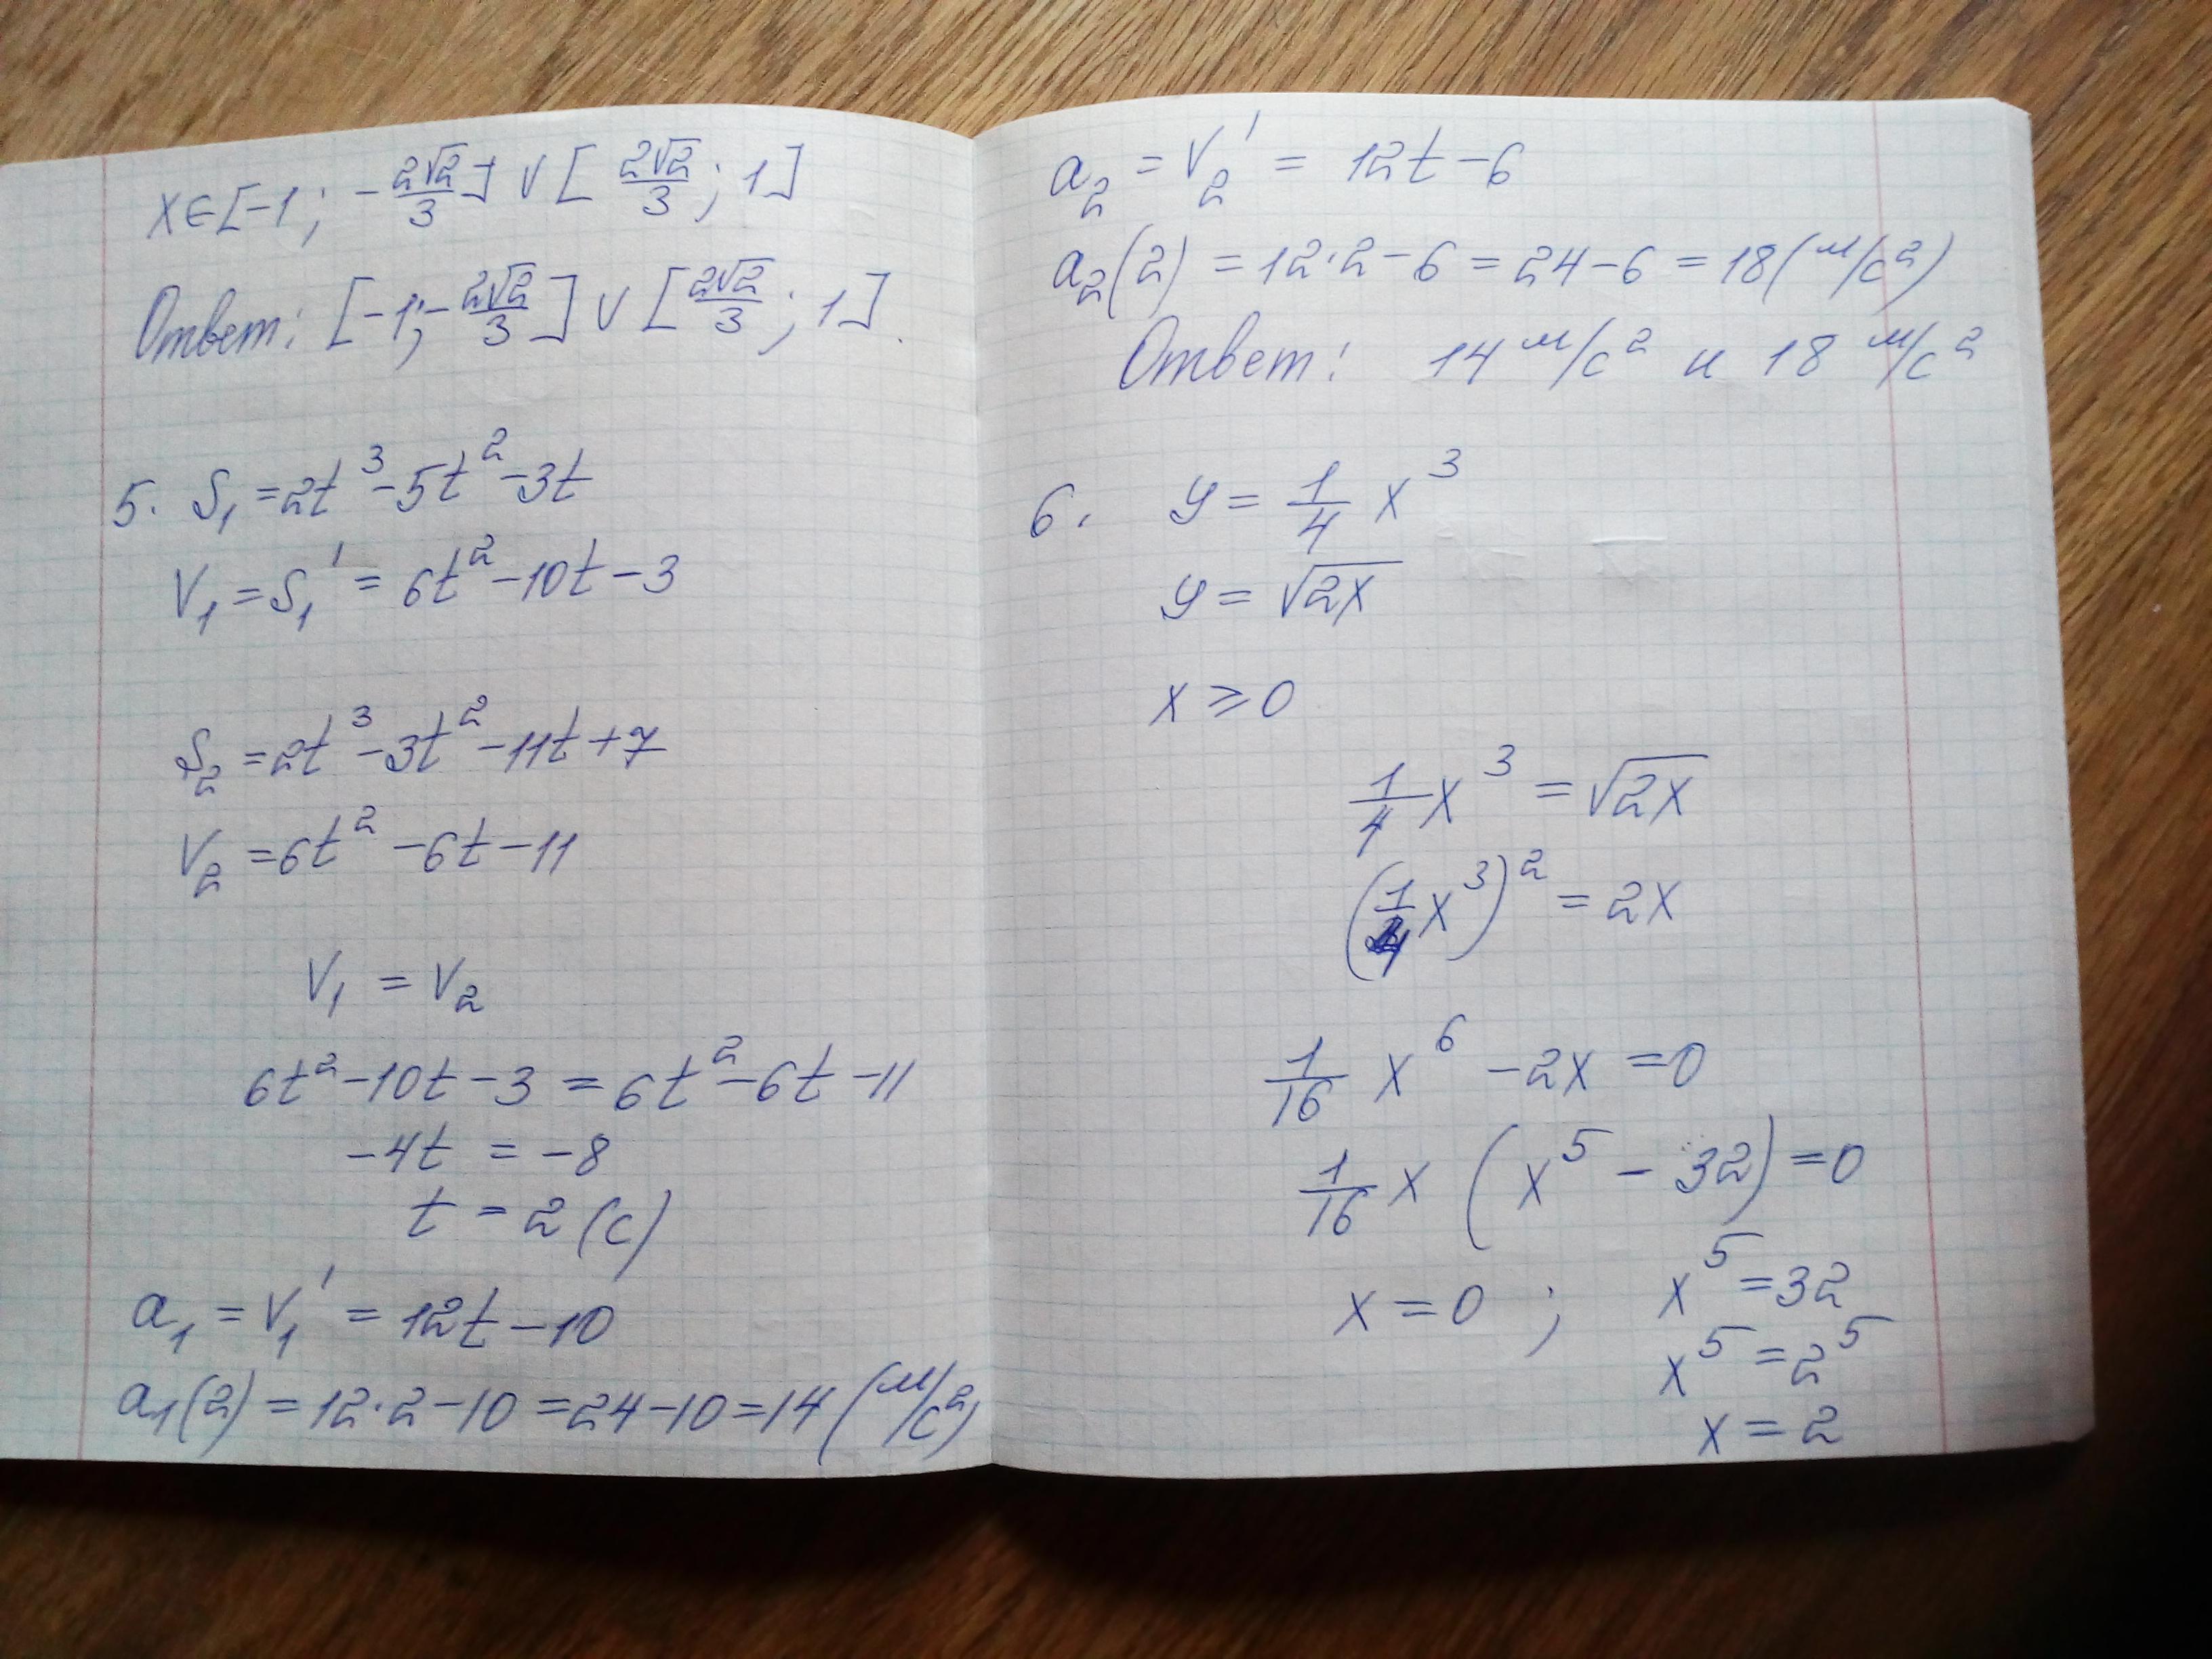 x∈[-1; -2√2/3] ∨ [2√2/3; 1]
Ответ: [-1; -2√2/3] ∨ [2√2/3; 1].
5. S₁ = 2t³ - 5t² - 3t
V₁ = S₁' = 6t² - 10t - 3
S₂ = 2t³ - 3t² - 11t + 7
V₂ = 6t² - 6t - 11
V₁ = V₂
6t² - 10t - 3 = 6t² - 6t - 11
-4t = -8
t = 2 (с)
a₁ = V₁' = 12t - 10
a₁(2) = 12·2 - 10 = 24 - 10 = 14 (м/с²)
a₂ = V₂' = 12t - 6
a₂(2) = 12·2 - 6 = 24 - 6 = 18 (м/с²)
Ответ: 14 м/с² и 18 м/с²
6. y = 1/4 x³
y = √2x
x ⩾ 0
1/4 x³ = √2x
(1/4 x³)² = 2x
1/16 x⁶ - 2x = 0
1/16 x (x⁵ - 32) = 0
x = 0 ; x⁵ = 32
x⁵ = 2⁵
x = 2